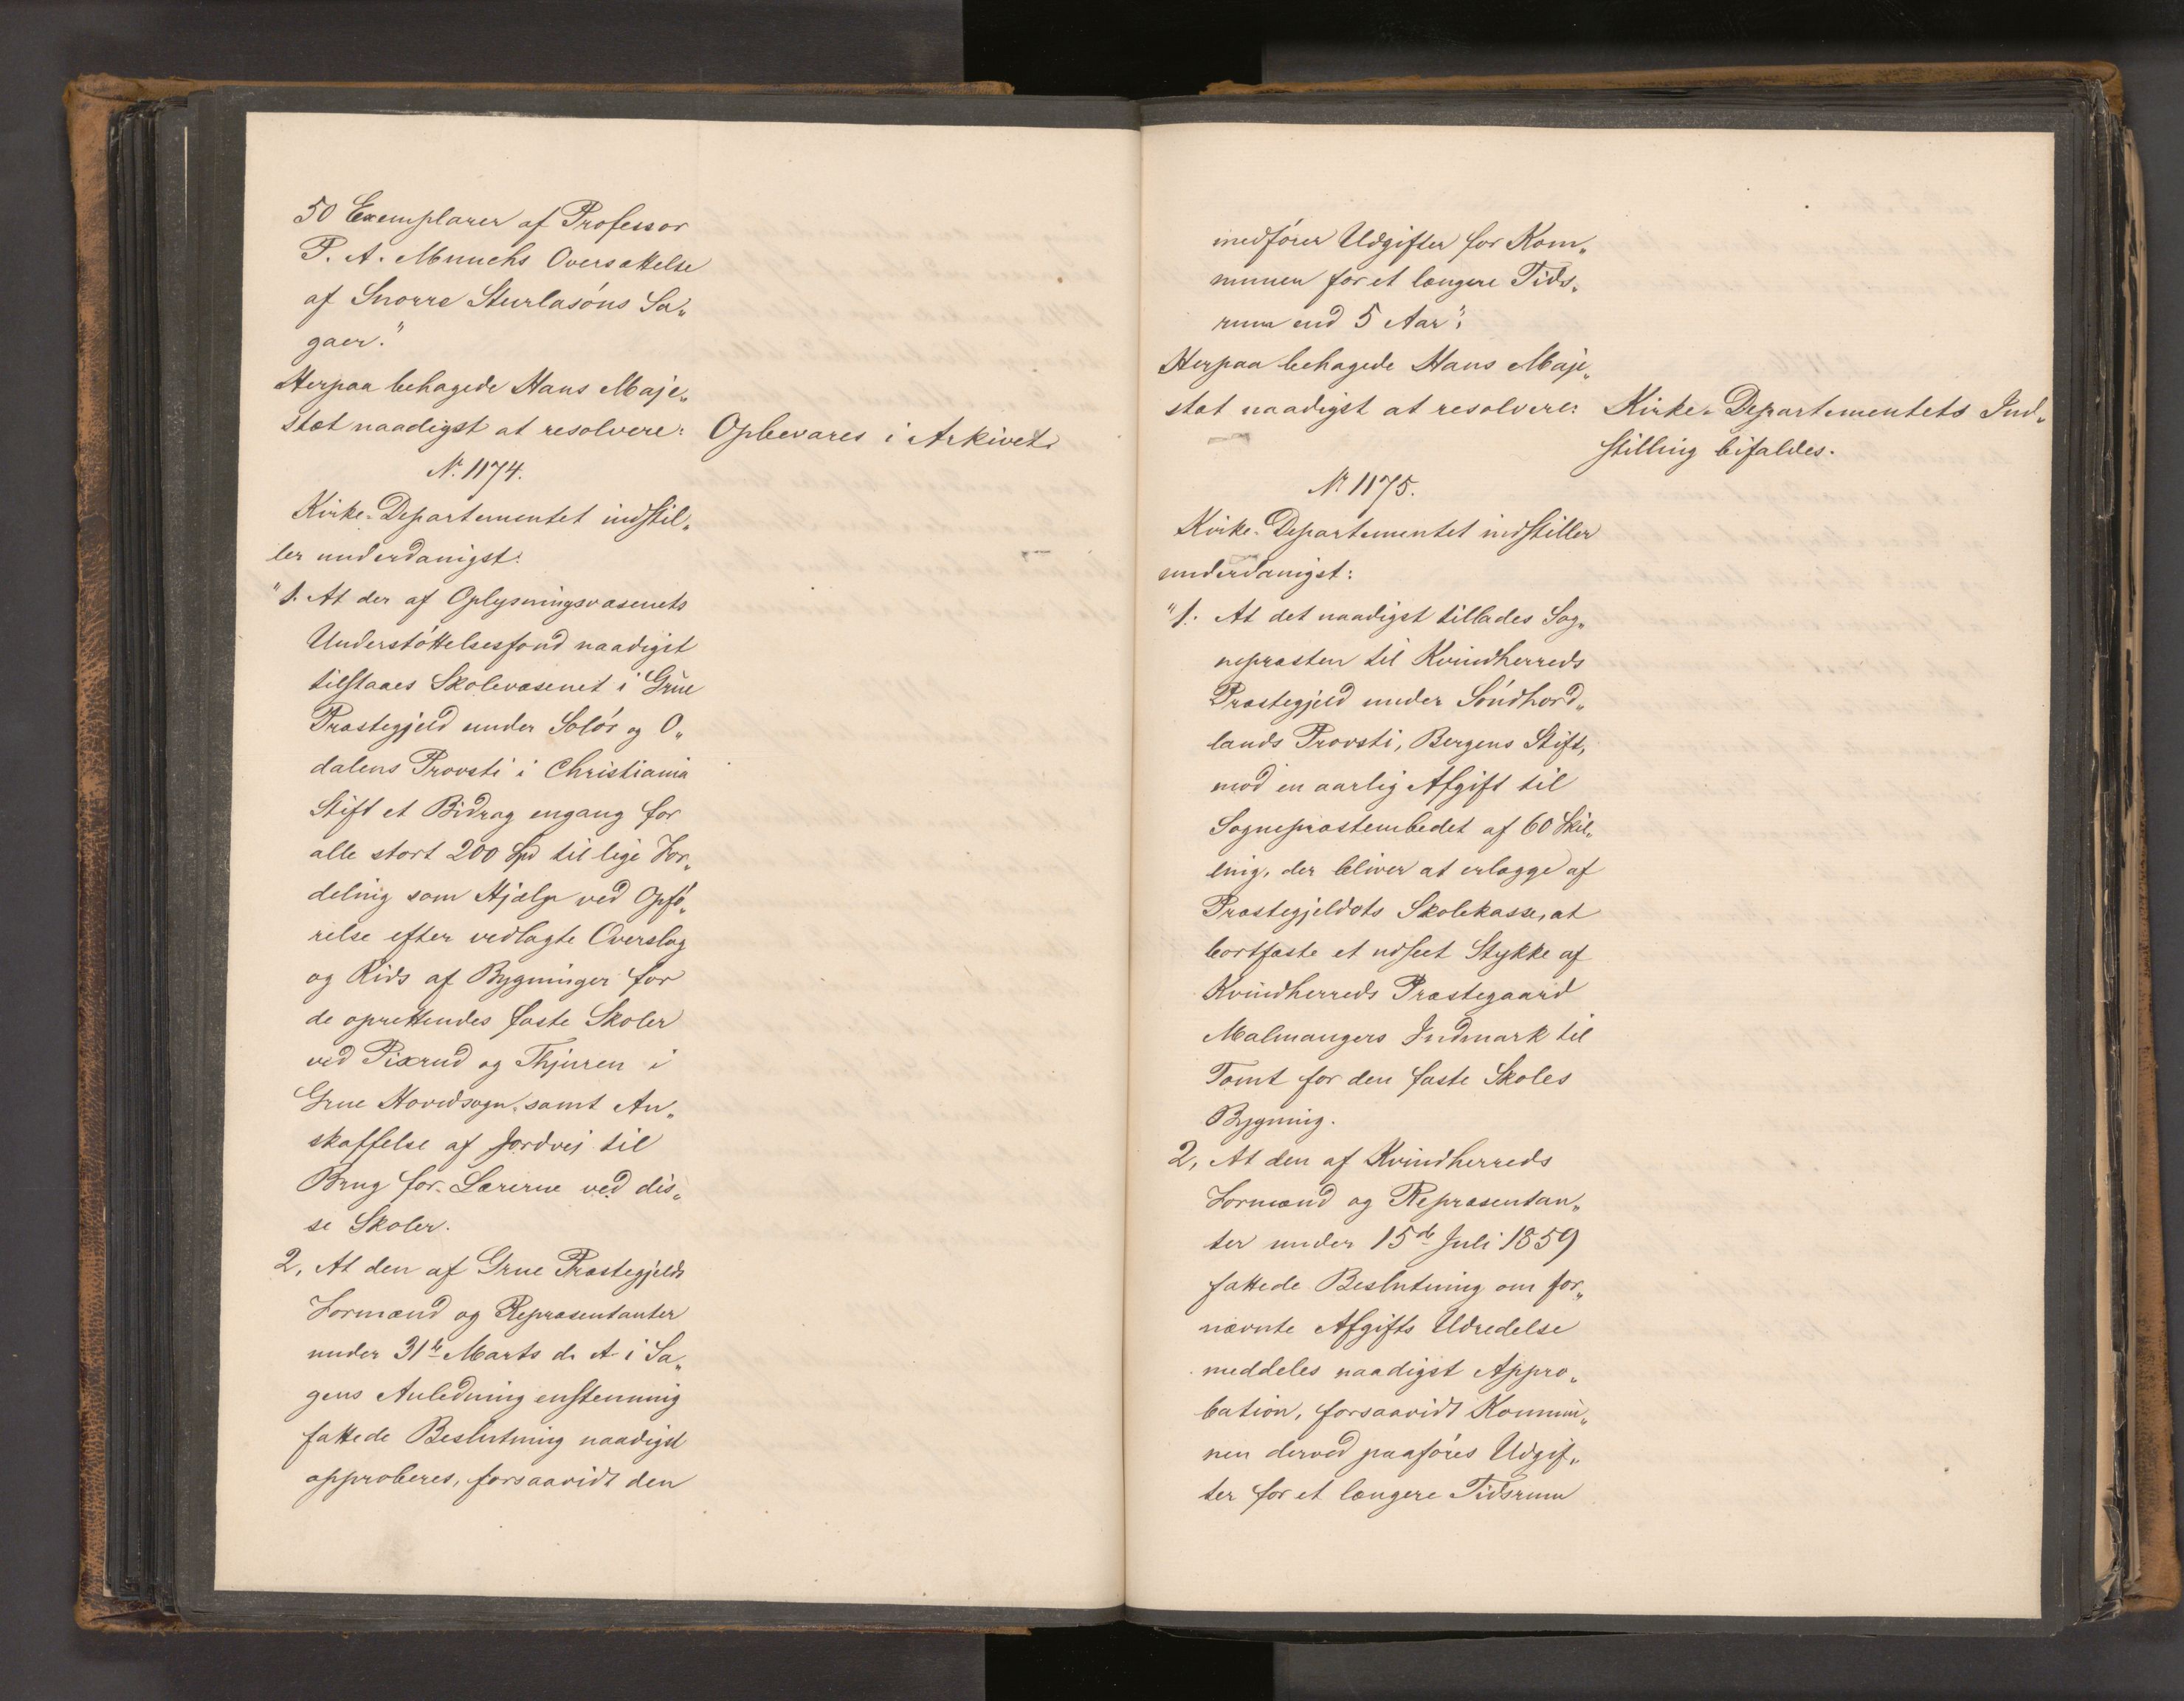 50 Exemplarer af Professor
P. A. Munchs Oversættelse
af Snorre Sturlasöns Sa„
gaer."
Herpaa behagede Hans Maje„
stæt naadigst at resolvere: Opbevares i Arkivet.
No. 1174.
Kirke-Departementet indstil„
ler underdanigst:
"1. At der af Oplysningsvæsenets
Understöttelsesfond naadigst
tilstaaes Skolevæsenet i Grue
Præstegjeld under Solör og O„
dalens Provsti i Christiania
Stift et Bidrag engang for
alle stort 200 Spd til lige For„
deling som Hjælp ved Opfö„
relse efter vedlagte Overslag
og Rids af Bygninger for
de oprettendes faste Skoler
ved Pixrud og Thjuren i
Grue Hovedsogn, samt An„
skaffelse af Jordvej til
Brug for Lærerne ved dis„
se Skoler.
2, At den af Grue Præstegjelds
Formænd og Repræsentanter
under 31te Marts d. A. i Sa„
gens Anledning enstemmig
fattede Beslutning naadigst
approberes, forsaavidt den
medförer Udgifter for Kom„
munen for et længere Tids„
rum end 5 Aar";
Herpaa behagede Hans Maje„
stæt naadigst at resolvere: Kirke-Departementets Ind„
stilling bifaldes.
No 1175.
Kirke-Departementet indstiller
underdanigst:
"1. At det naadigst tillades Sog„
nepræsten til Kvindherreds
Præstegjeld under Söndhord„
lands Provsti, Bergens Stift,
mod en aarlig Afgift til
Sognepræstembedet af 60 Skil„
ling, der bliver at erlægge af
Præstegjeldets Skolekasse, at
bortfæste et udseet Stykke af
Kvindherreds Præstegaard
Malmangers Indmark til
Tomt for den faste Skoles
Bygning.
2, At den af Kvindherreds
Formænd og Repræsentan„
ter under 15de Juli 1859
fattede Beslutning om for„
nævnte Afgifts Udredelse
meddeles naadigst Appro„
bation, forsaavidt Kommu„
nen derved paaföres Udgif„
ter for et længere Tidsrum